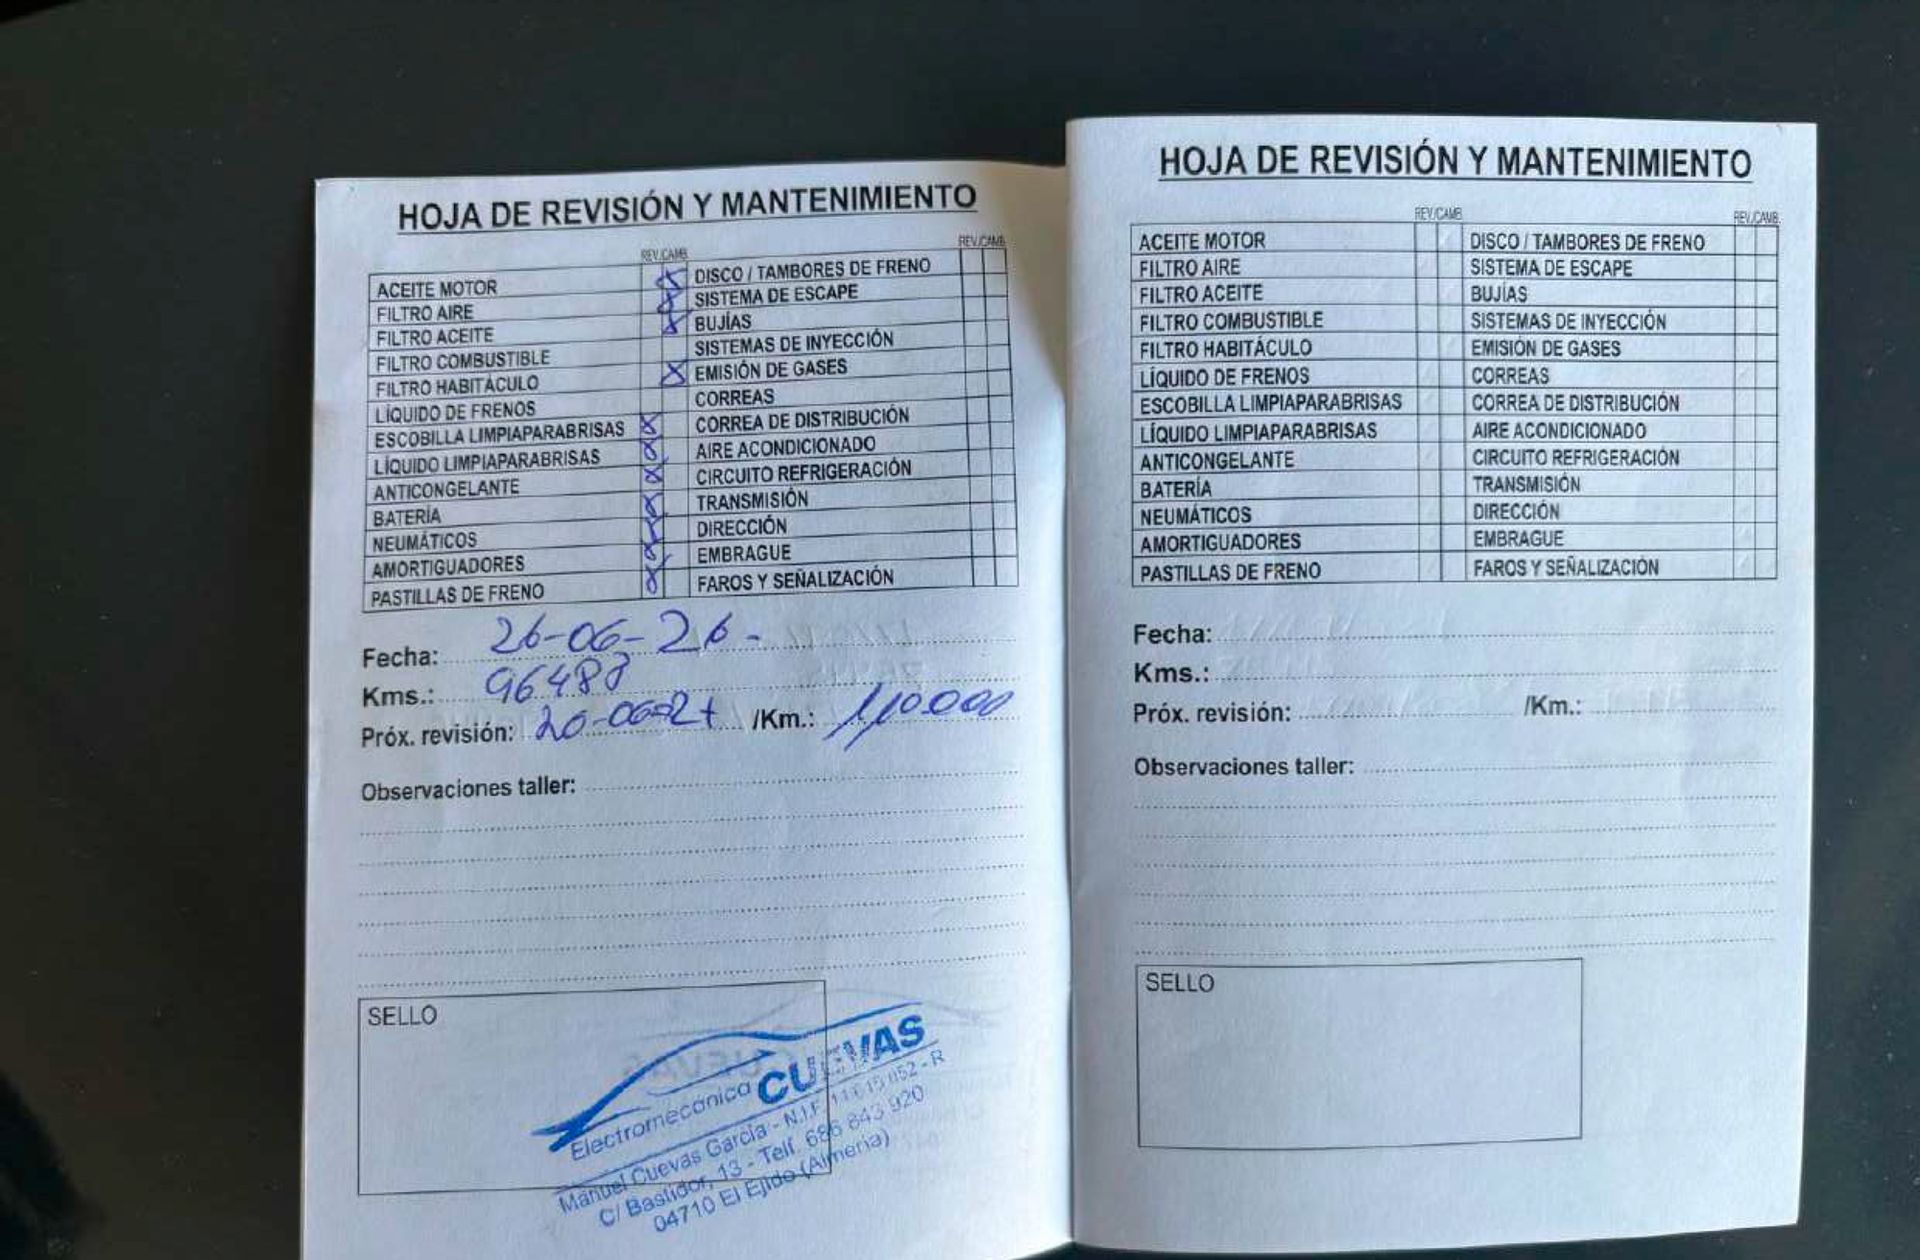 HOJA DE REVISIÓN Y MANTENIMIENTO
REV. CAMB. REV. CAMB.
ACEITE MOTOR X DISCO / TAMBORES DE FRENO
FILTRO AIRE X SISTEMA DE ESCAPE
FILTRO ACEITE X BUJÍAS
FILTRO COMBUSTIBLE SISTEMAS DE INYECCIÓN
FILTRO HABITÁCULO X EMISIÓN DE GASES
LÍQUIDO DE FRENOS CORREAS
ESCOBILLA LIMPIAPARABRISAS X CORREA DE DISTRIBUCIÓN
LÍQUIDO LIMPIAPARABRISAS X AIRE ACONDICIONADO
ANTICONGELANTE X CIRCUITO REFRIGERACIÓN
BATERÍA X TRANSMISIÓN
NEUMÁTICOS X DIRECCIÓN
AMORTIGUADORES X EMBRAGUE
PASTILLAS DE FRENO X FAROS Y SEÑALIZACIÓN
Fecha: 26-06-26-
Kms.: 96488
Próx. revisión: 20-06-27 /Km.: 110000
Observaciones taller:
SELLO
Electromecánica CUEVAS
Manuel Cuevas García - N.I.F.
C/ Bastidor, 13 - Telf. 686 843 920
04710 El Ejido (Almería)
HOJA DE REVISIÓN Y MANTENIMIENTO
REV./CAMB. REV./CAMB.
ACEITE MOTOR DISCO / TAMBORES DE FRENO
FILTRO AIRE SISTEMA DE ESCAPE
FILTRO ACEITE BUJÍAS
FILTRO COMBUSTIBLE SISTEMAS DE INYECCIÓN
FILTRO HABITÁCULO EMISIÓN DE GASES
LÍQUIDO DE FRENOS CORREAS
ESCOBILLA LIMPIAPARABRISAS CORREA DE DISTRIBUCIÓN
LÍQUIDO LIMPIAPARABRISAS AIRE ACONDICIONADO
ANTICONGELANTE CIRCUITO REFRIGERACIÓN
BATERÍA TRANSMISIÓN
NEUMÁTICOS DIRECCIÓN
AMORTIGUADORES EMBRAGUE
PASTILLAS DE FRENO FAROS Y SEÑALIZACIÓN
Fecha:
Kms.:
Próx. revisión: /Km.:
Observaciones taller:
SELLO